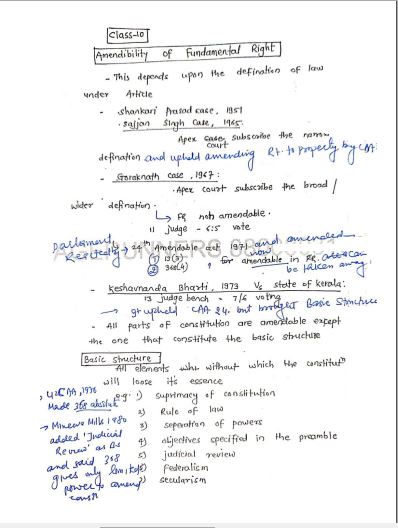 Class-10
Amendibility of Fundamental Right
- This depends upon the defination of law
under Article
- Shankari Prasad case, 1951
. Sajjan Singh Case, 1965.
Apex court subscribe the narrow
defination and upheld amending Rt. to property by CAA
- Goraknath case, 1967:
. Apex court subscribe the broad /
wider defination.
FR non amendable.
11 judge - 6:5 vote
Parliament
24th Amendable act 1971 and amended
① 13(3)
② 368(4) for amendable in FR.
be taken away.
- Keshavnanda Bharti, 1973 Vs state of kerala:
13 judge bench = 7/6 voting
→ It upheld CAA 24. but brought Basic Structure
- All parts of constitution are amendable except
the one that constitute the basic structure
Basic structure
All elements without which the constitutn
will loose its essence
42 CAA, 1976
Made 368 absolute
→ Minerva Mills 1980
added 'Judicial
Review' as BS
and said 368
gives only limited
power to amend
constn
e.g: 1) suprimacy of constitution
2) Rule of law
3) separation of powers
4) objectives specified in the preamble
5) judicial review
Federalism
secularism